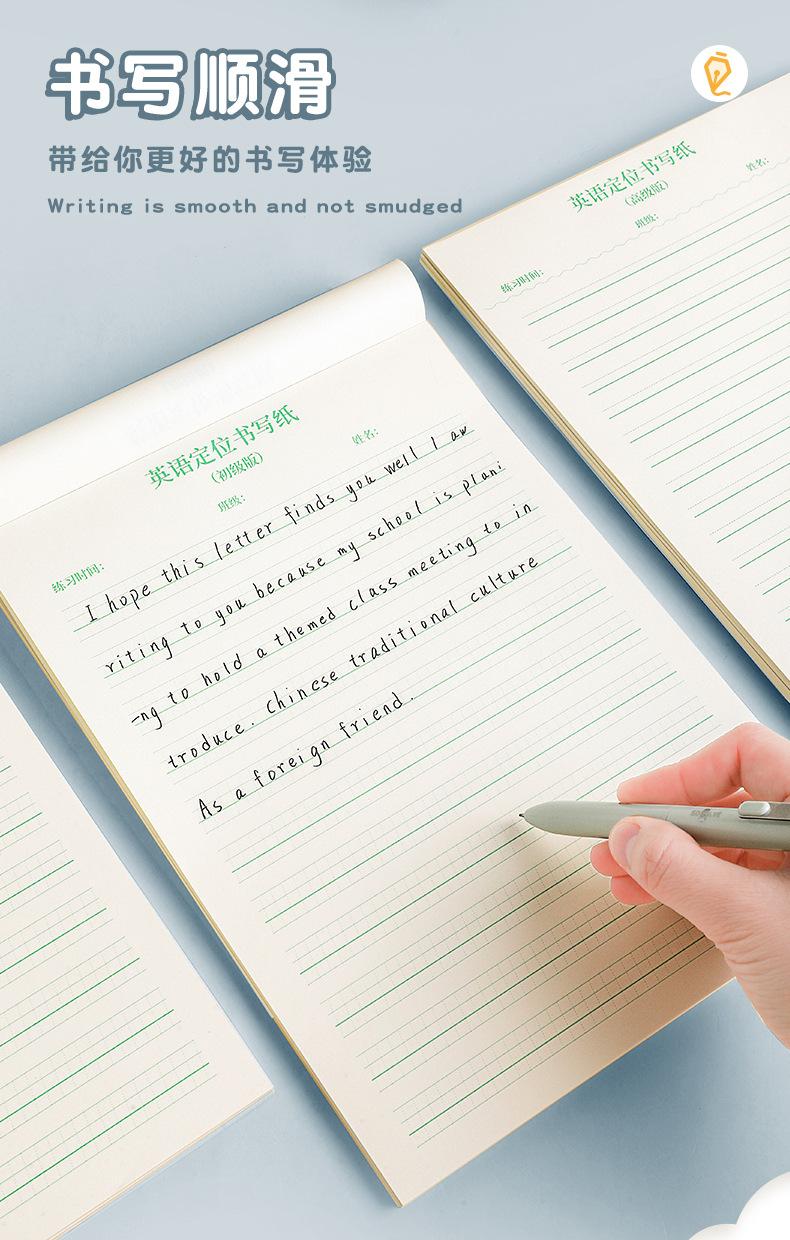 书写顺滑
带给你更好的书写体验
Writing is smooth and not smudged
英语定位书写纸
(高级版)
班级:
姓名:
练习时间:
英语定位书写纸
(初级版)
班级:
姓名:
练习时间:
I hope this letter finds you well I aw
riting to you because my school is plani
-ng to hold a themed class meeting to in
troduce. Chinese traditional culture
As a foreign friend.